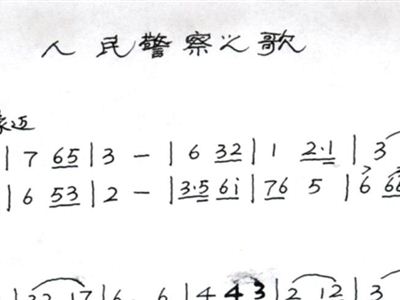 人民警察之歌
豪迈
| 7 65 | 3 – | 6 32 | 1 2·1 | 3
| 6 53 | 2 – | 3·5 6i | 76 5 | 6 66
| 32 17 | 6 6 | 4 43 | 2 12 | 3